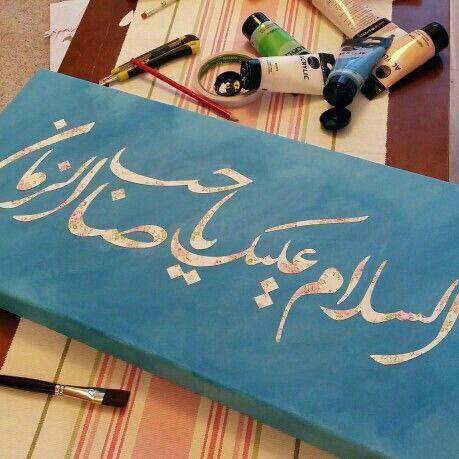 السلام علیک یا صاحب الزمان
ACRYLIC